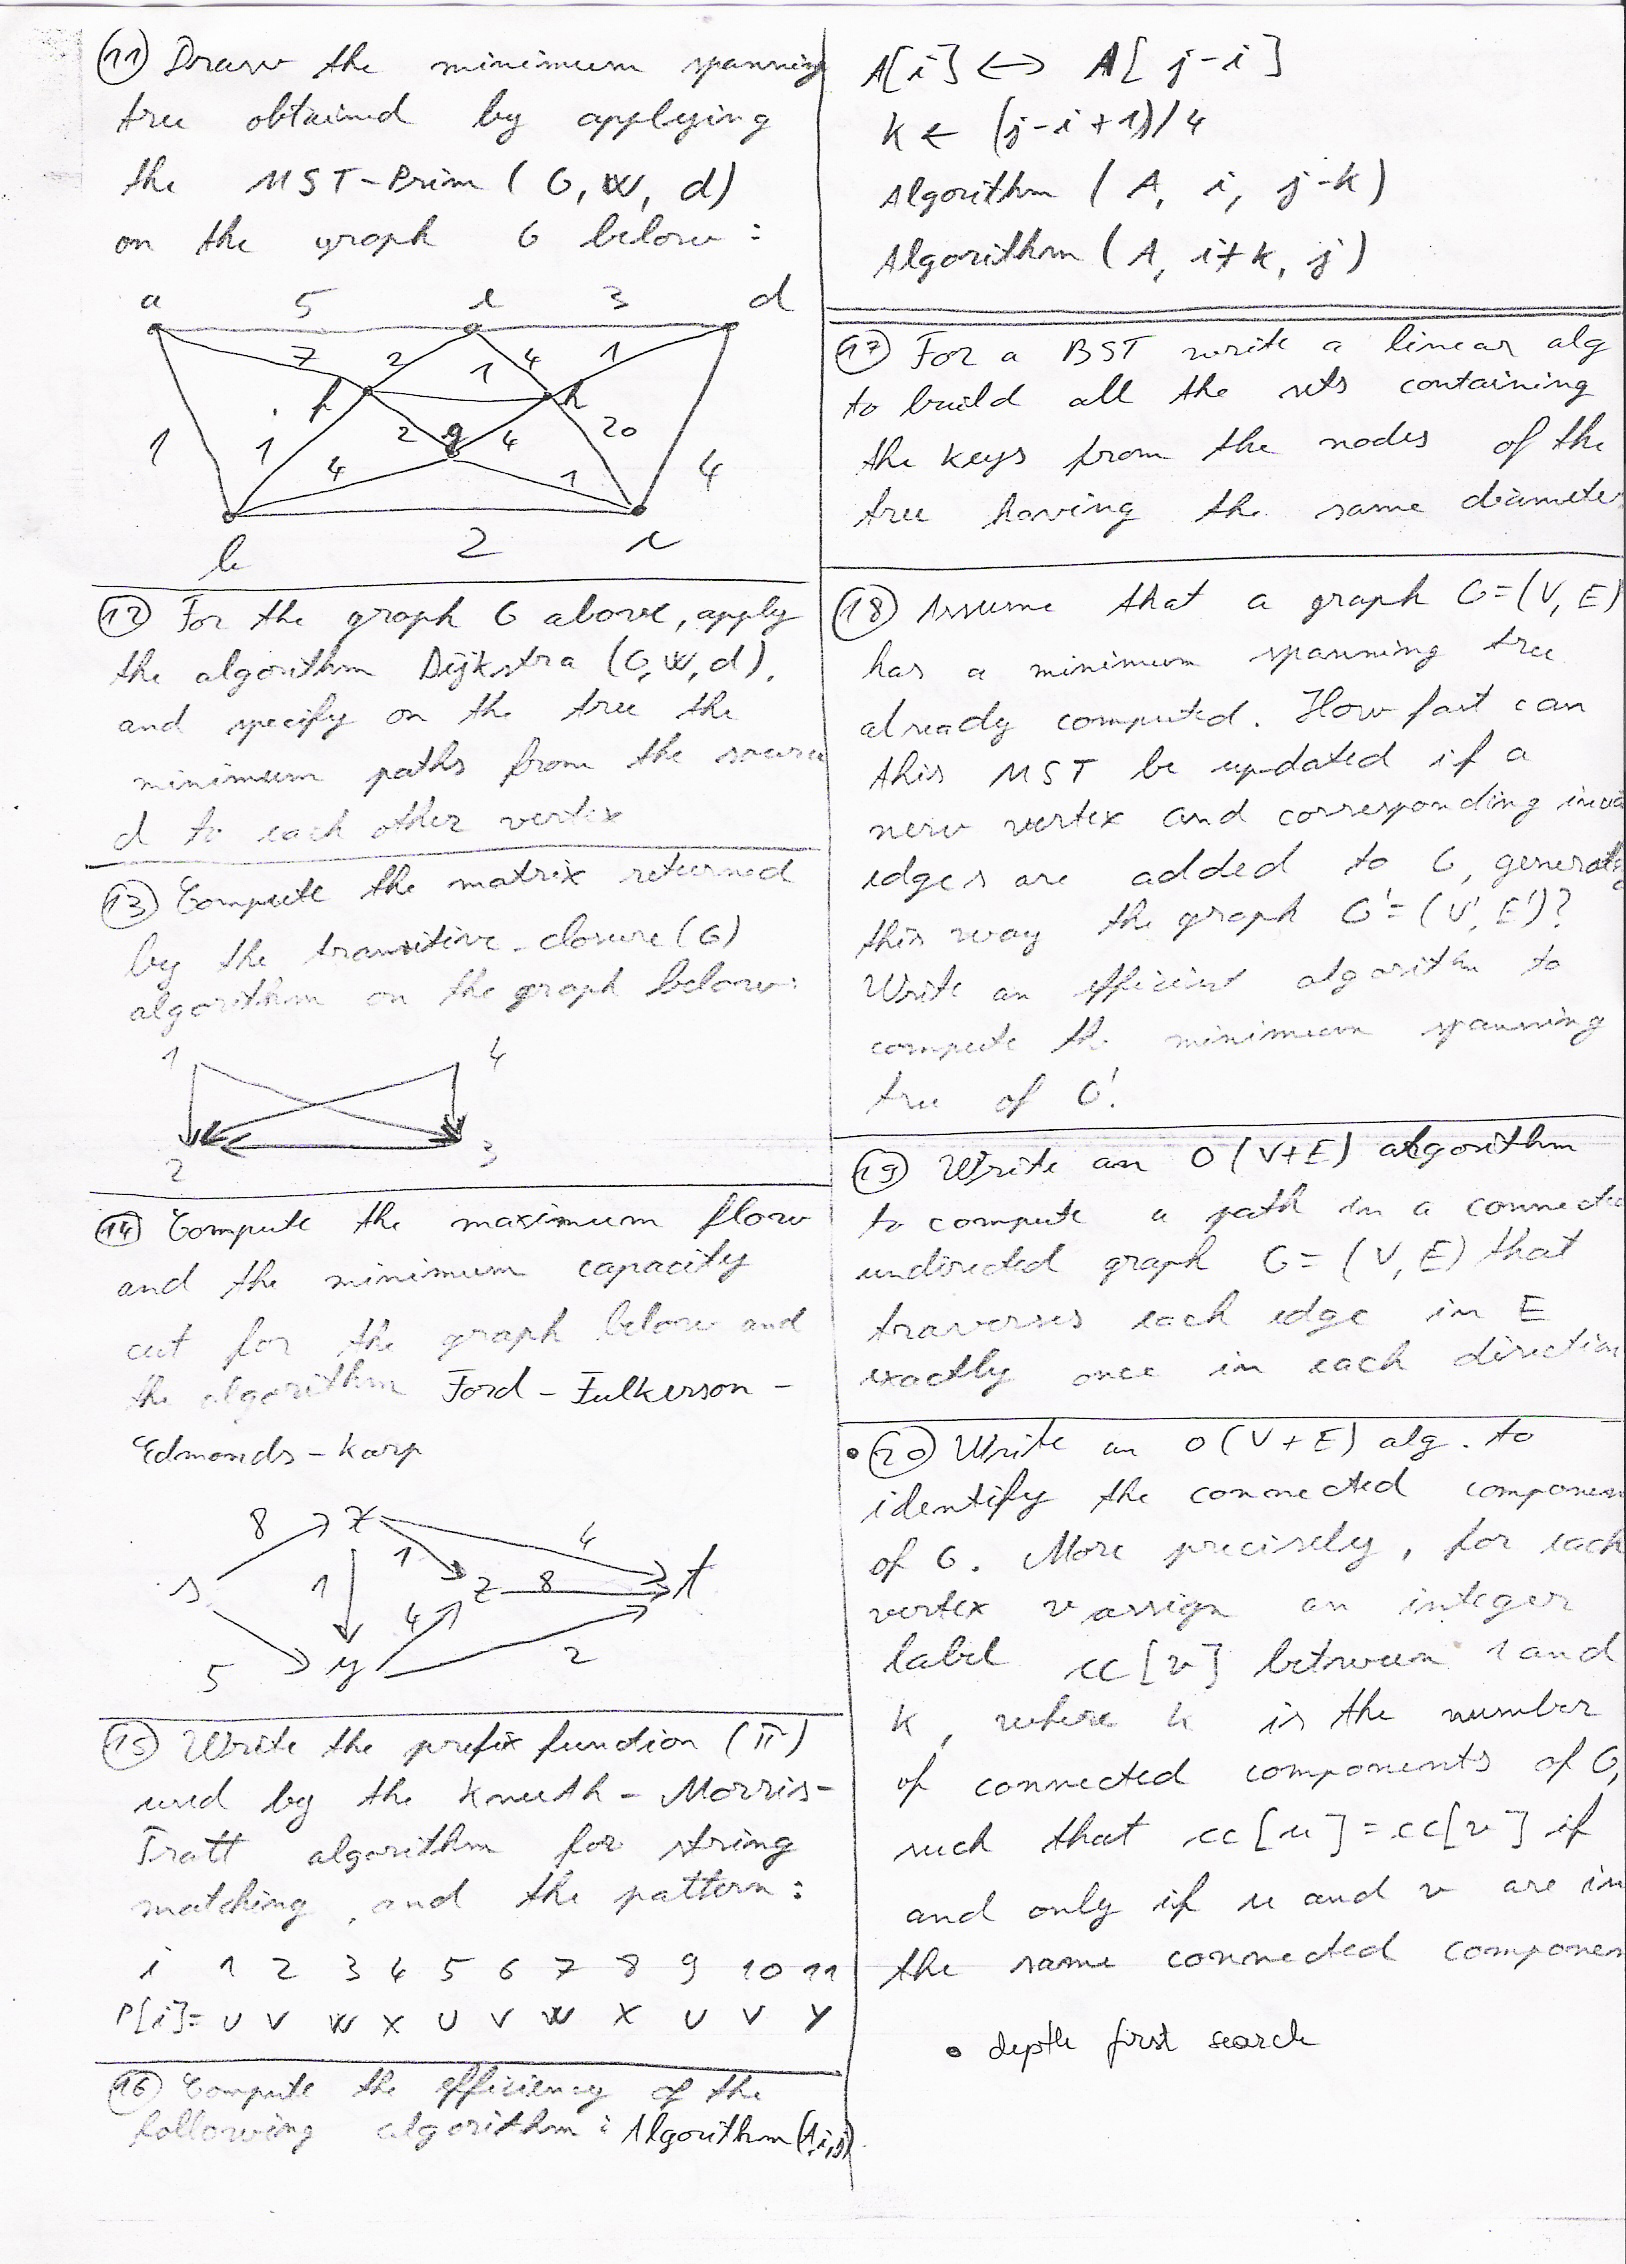 (11) Draw the minimum spanning
tree obtained by applying
the MST-Prim (G, W, d)
on the graph G below:
a 5 e 3 d
7 2 1 4 1
f h
1 1 2 g 4 20
4 1 4
b 2 c
(12) For the graph G above, apply
the algorithm Dijkstra (G, W, d),
and specify on the tree the
minimum paths from the source
d to each other vertex
(13) Compute the matrix returned
by the transitive-closure (G)
algorithm on the graph below:
1 4
2 3
(14) Compute the maximum flow
and the minimum capacity
cut for the graph below and
the algorithm Ford-Fulkerson-
Edmonds-Karp
8 x 4
1
s 1 z 8 t
4
5 y 2
(15) Write the prefix function (π)
used by the Knuth-Morris-
Pratt algorithm for string
matching, and the pattern:
i 1 2 3 4 5 6 7 8 9 10 11
P[i]= U V W X U V W X U V Y
(16) Compute the efficiency of the
following algorithm: Algorithm(A,i,j)
A[i] <-> A[j-i]
k ← (j-i+1)/4
Algorithm (A, i, j-k)
Algorithm (A, i+k, j)
(17) For a BST write a linear alg
to build all the sets containing
the keys from the nodes of the
tree having the same diamete
(18) Assume that a graph G=(V, E)
has a minimum spanning tree
already computed. How fast can
this MST be updated if a
new vertex and corresponding
edges are added to G, generatg
this way the graph G'=(V', E')?
Write an efficient algorithm to
compute the minimum spanning
tree of G'.
(19) Write an O(V+E) algorithm
to compute a path in a connecte
undirected graph G=(V, E) that
traverses each edge in E
exactly once in each direction
• (20) Write an O(V+E) alg. to
identify the connected componen
of G. More precisely, for each
vertex v assign an integer
label cc[v] between 1 and
k, where k is the number
of connected components of G,
such that cc[u]=cc[v] if
and only if u and v are in
the same connected componen
• depth first search